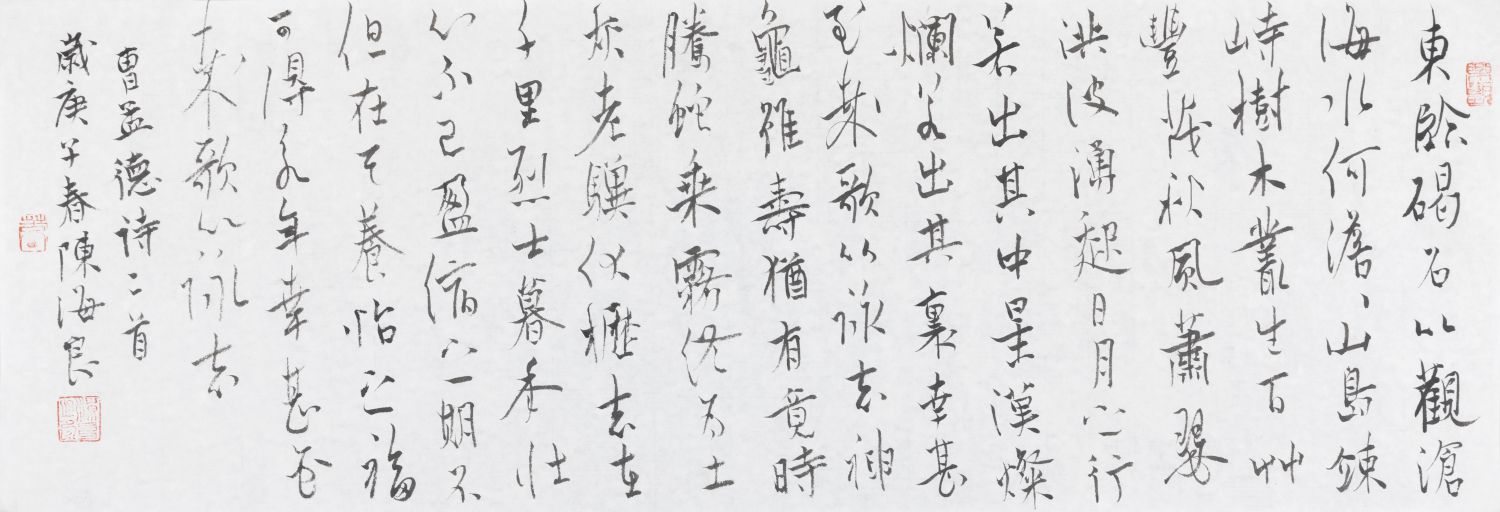 東臨碣石以觀滄
海水何澹、山島竦
峙樹木叢生百艸
豐茂秋風蕭瑟
洪波湧起日月之行
若出其中星漢燦
爛若出其裏幸甚
至哉歌以詠志神
龜雖壽猶有竟時
騰蛇乘霧終為土
灰老驥伏櫪志在
千里烈士暮年壯
心不已盈縮之期不
但在天養怡之福
可得永年幸甚至
哉歌以詠志
曹孟德诗二首
歲庚子春陳海良